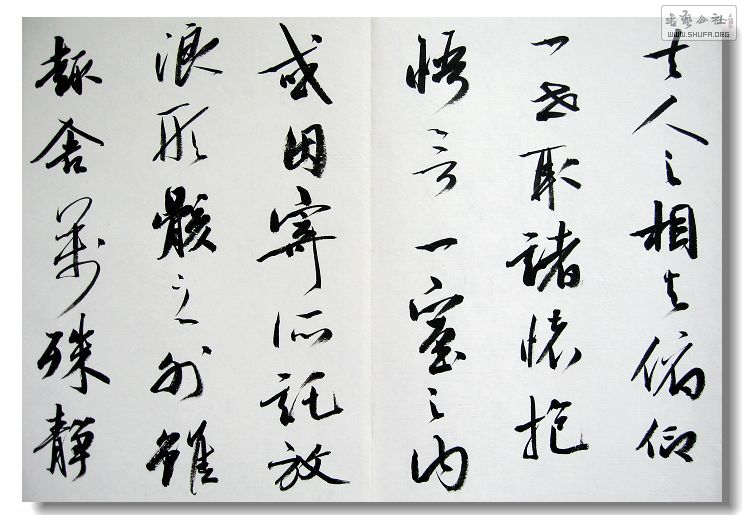 夫人之相與俯仰
一世取諸懷抱
悟言一室之內
或因寄所託放
浪形骸之外雖
趣舍萬殊靜
書藝公社
WWW.SHUFA.ORG